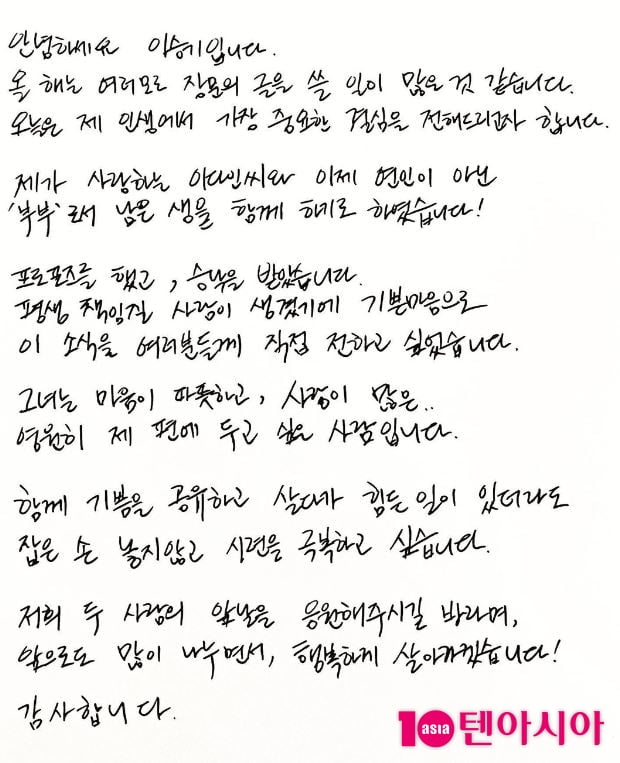 안녕하세요 이승기입니다.
올 해는 여러모로 장문의 글을 쓸 일이 많은 것 같습니다.
오늘은 제 인생에서 가장 중요한 결심을 전해드리고자 합니다.
제가 사랑하는 이다인씨와 이제 연인이 아닌
'부부'로서 남은 생을 함께 하기로 하였습니다!
프로포즈를 했고, 승낙을 받았습니다.
평생 책임질 사람이 생겼기에 기쁜마음으로
이 소식을 여러분들께 직접 전하고 싶었습니다.
그녀는 마음이 따뜻하고, 사랑이 많은..
영원히 제 편에 두고 싶은 사람입니다.
함께 기쁨을 공유하고 살다가 힘든 일이 있더라도
잡은 손 놓지않고 시련을 극복하고 싶습니다.
저희 두 사람의 앞날을 응원해주시길 바라며,
앞으로도 많이 나누면서, 행복하게 살아가겠습니다!
감사합니다.
10asia 텐아시아